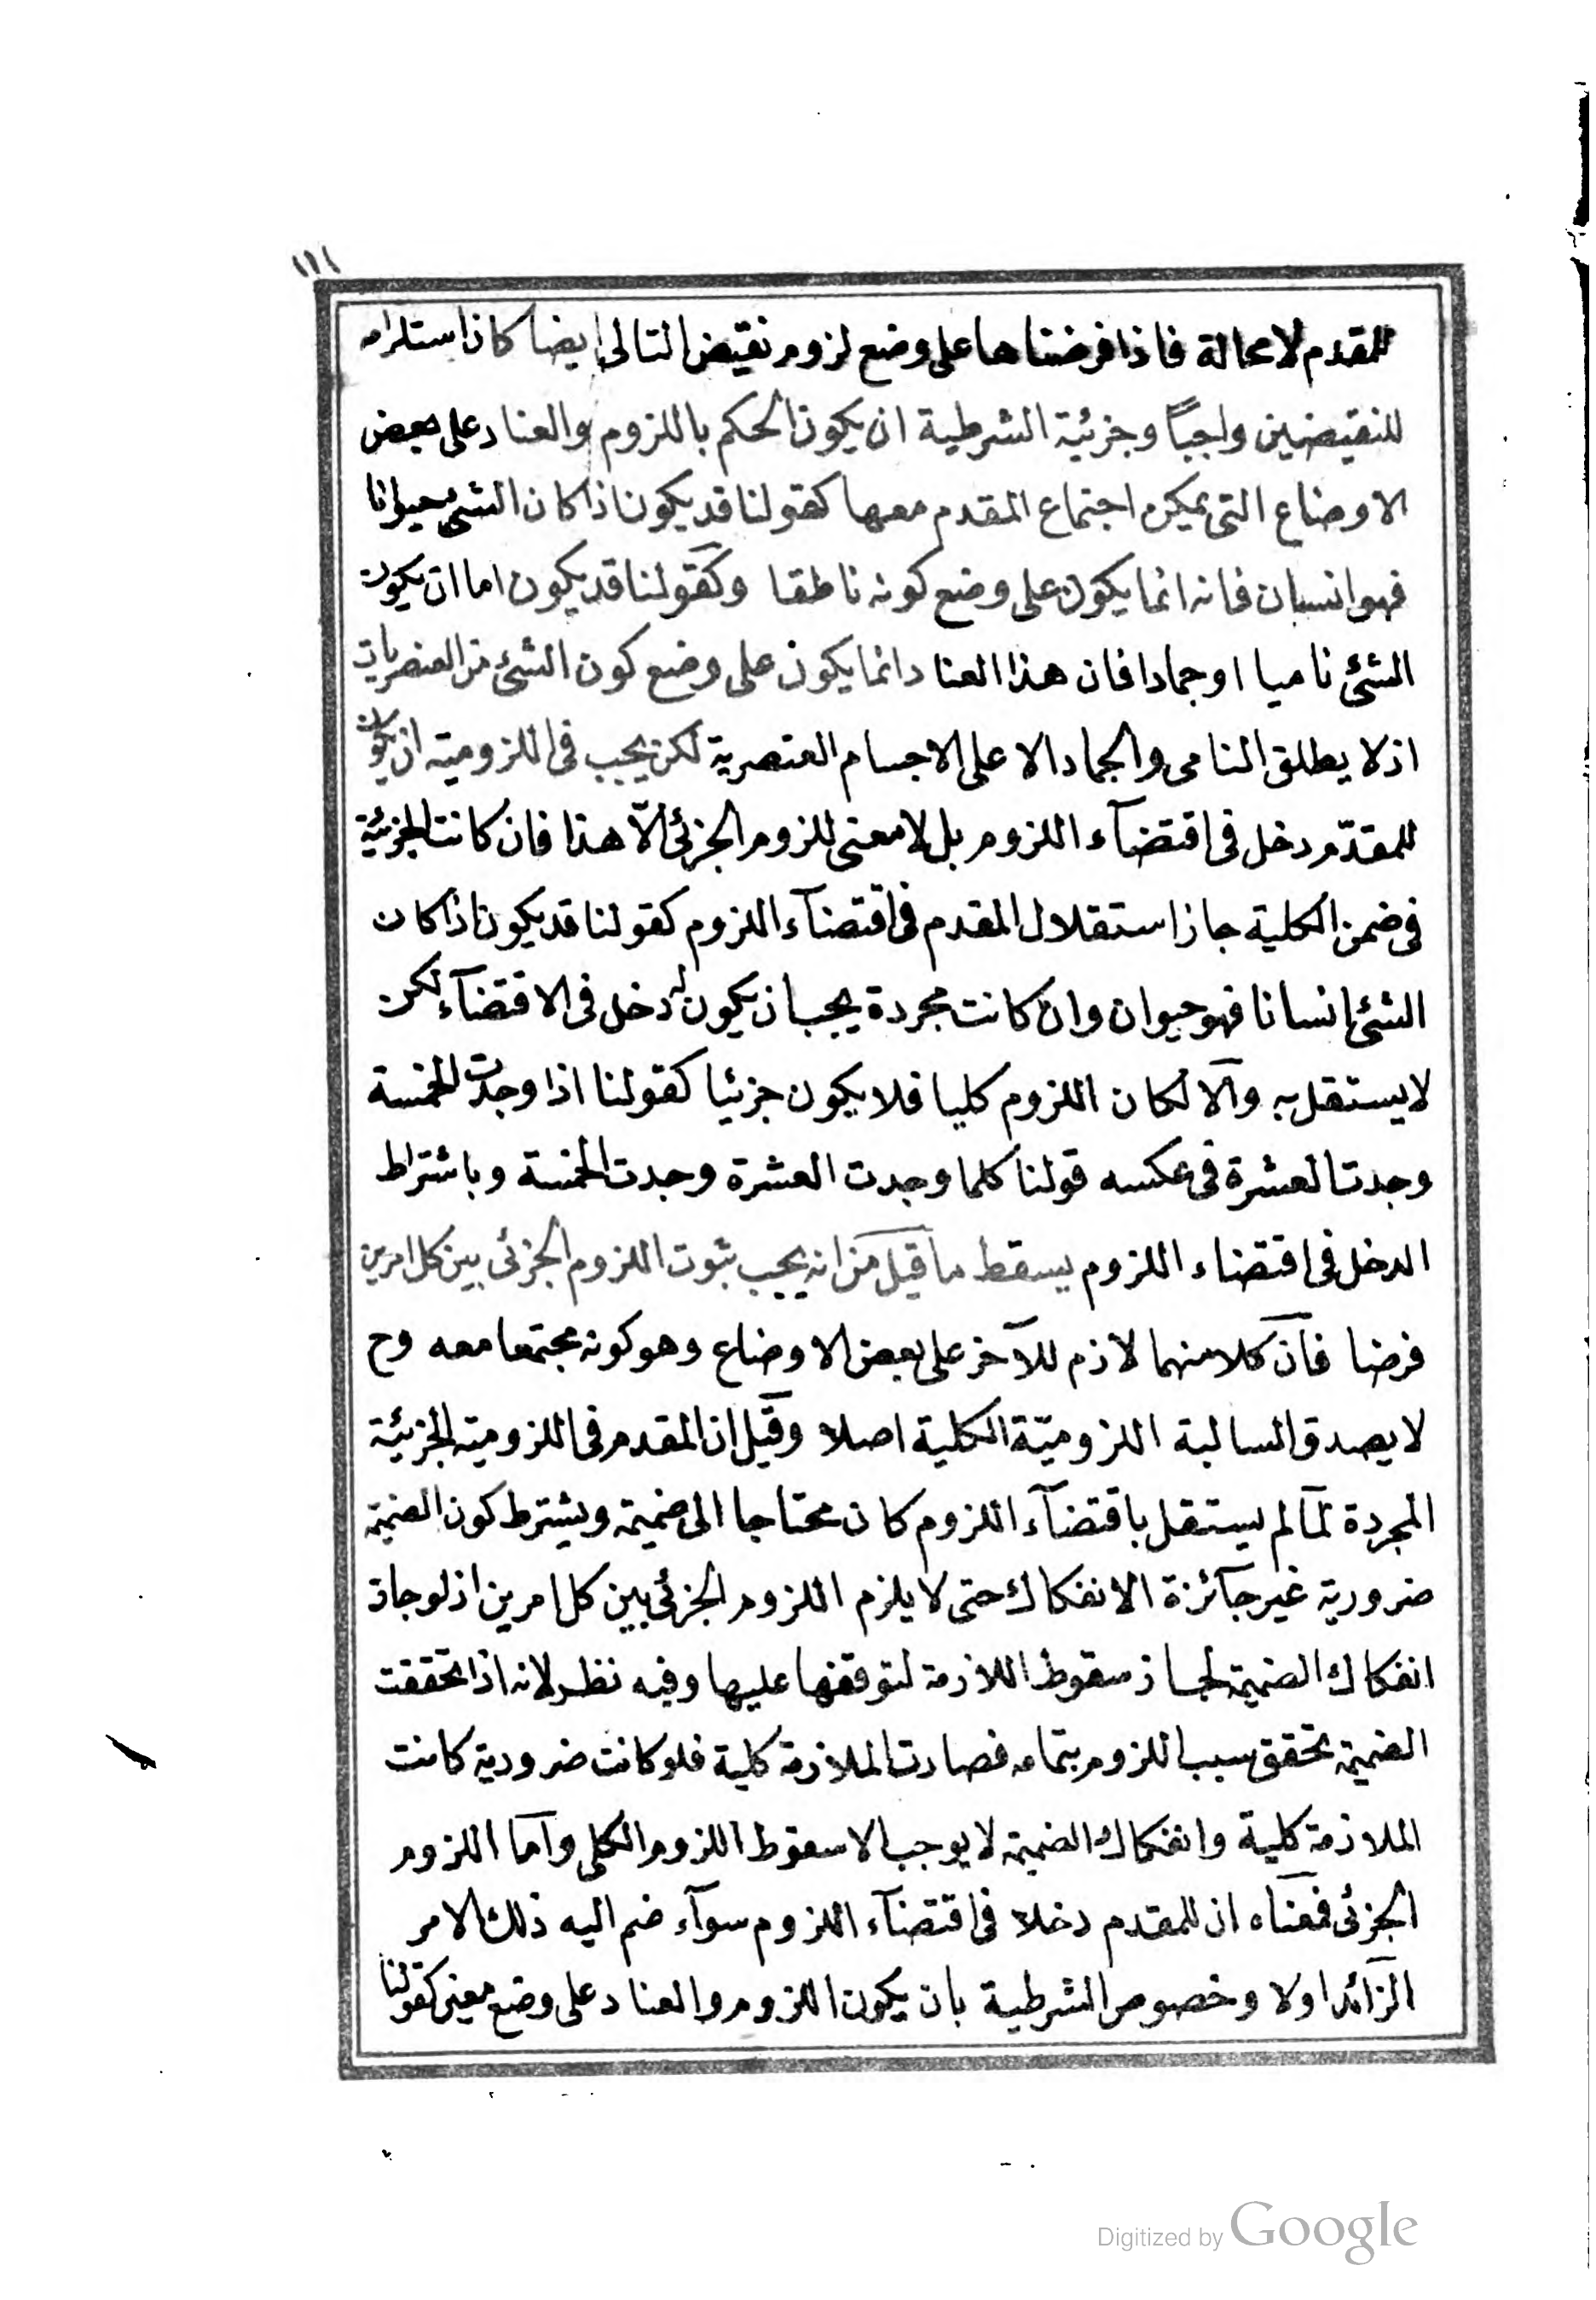 ١١١
للمقدم لامحالة فاذا فرضناها على وضع لزوم نقيض التالى ايضا كان استلزامه
للنقيضين واجبًا وجزئية الشرطية ان يكون الحكم باللزوم والعناد على بعض
الاوضاع التى يمكن اجتماع المقدم معها كقولنا قد يكون اذا كان الشئ حيوانا
فهو انسان فانه انما يكون على وضع كونه ناطقا وكقولنا قد يكون اما ان يكون
الشئ ناميا او جمادا فان هذا العناد انما يكون على وضع كون الشئ من العنصريات
اذ لا يطلق النامى والجماد الا على الاجسام العنصرية لكن يجب فى اللزومية ان يكون
للمقدّم دخل فى اقتضآء اللزوم بل لا معنى للزوم الجزئى الّا هذا فان كانت الجزئية
فى ضمن الكلية جاز استقلال المقدم فى اقتضآء اللزوم كقولنا قد يكون اذا كان
الشئ انسانا فهو حيوان وان كانت مجردة يجب ان يكون له دخل فى الاقتضآء لكن
لا يستقل به والا لكان اللزوم كليا فلا يكون جزئيا كقولنا اذا وجدت الخمسة
وجدت العشرة فى عكسه قولنا كلما وجدت العشرة وجدت الخمسة وباشتراط
الدخل فى اقتضاء اللزوم يسقط ما قيل من انه يجب ثبوت اللزوم الجزئى بين كل امرين
فرضا فان كلا منهما لازم للآخر على بعض الاوضاع وهو كونه مجتمعا معه وح
لا يصدق السالبة اللزوميّة الكلية اصلا وقيل ان المقدم فى اللزومية الجزئية
المجردة لما لم يستقل باقتضآء اللزوم كان محتاجا الى ضميمة ويشترط كون الضميمة
ضرورية غير جآئزة الانفكاك حتى لا يلزم اللزوم الجزئى بين كل امرين اذ لو جاز
انفكاك الضميمة لجاز سقوط اللازمة لتوقفها عليها وفيه نظر لانه اذا تحققت
الضميمة تحقق سبب اللزوم بتمامه فصارت الملازمة كلية فلو كانت ضرورية كانت
الملازمة كلية وانفكاك الضميمة لا يوجب الا سقوط اللزوم الكلى واما اللزوم
الجزئى فمعناه ان للمقدم دخلا فى اقتضآء اللزوم سوآء ضم اليه ذلك الامر
الزآئد او لا وخصوص الشرطية بان يكون اللزوم والعناد على وضع معين كقولنا
Digitized by Google